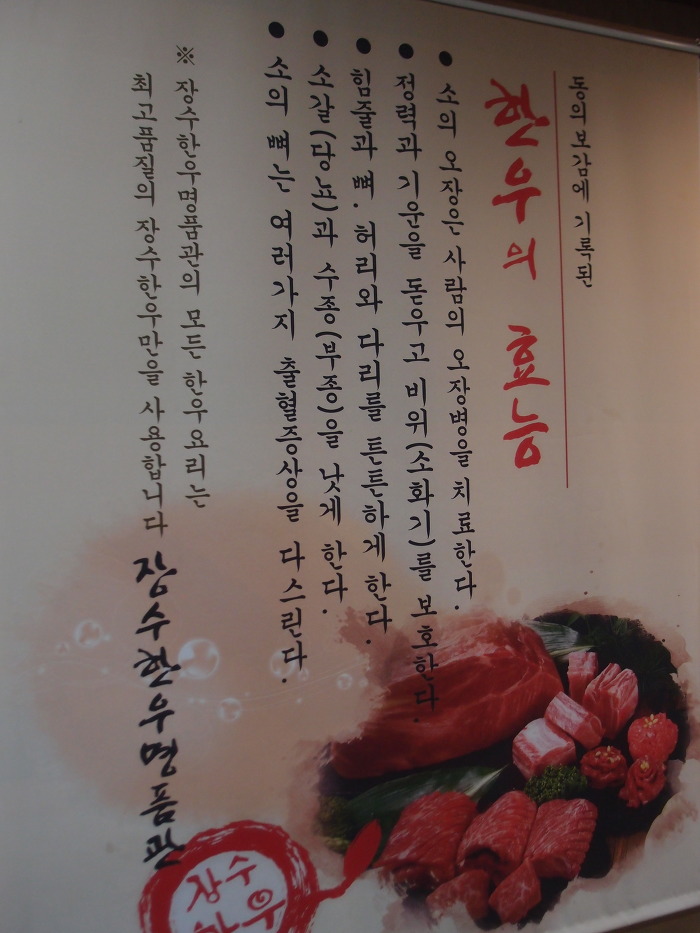 동의보감에 기록된
한우의 효능
• 소의 오장은 사람의 오장병을 치료한다.
• 정력과 기운을 돋우고 비위(소화기)를 보호한다.
• 힘줄과 뼈. 허리와 다리를 튼튼하게 한다.
• 소갈(당뇨)과 수종(부종)을 낫게 한다.
• 소의 뼈는 여러가지 출혈증상을 다스린다.
※ 장수한우명품관의 모든 한우요리는
최고품질의 장수한우만을 사용합니다
장수한우명품관
장수
한우